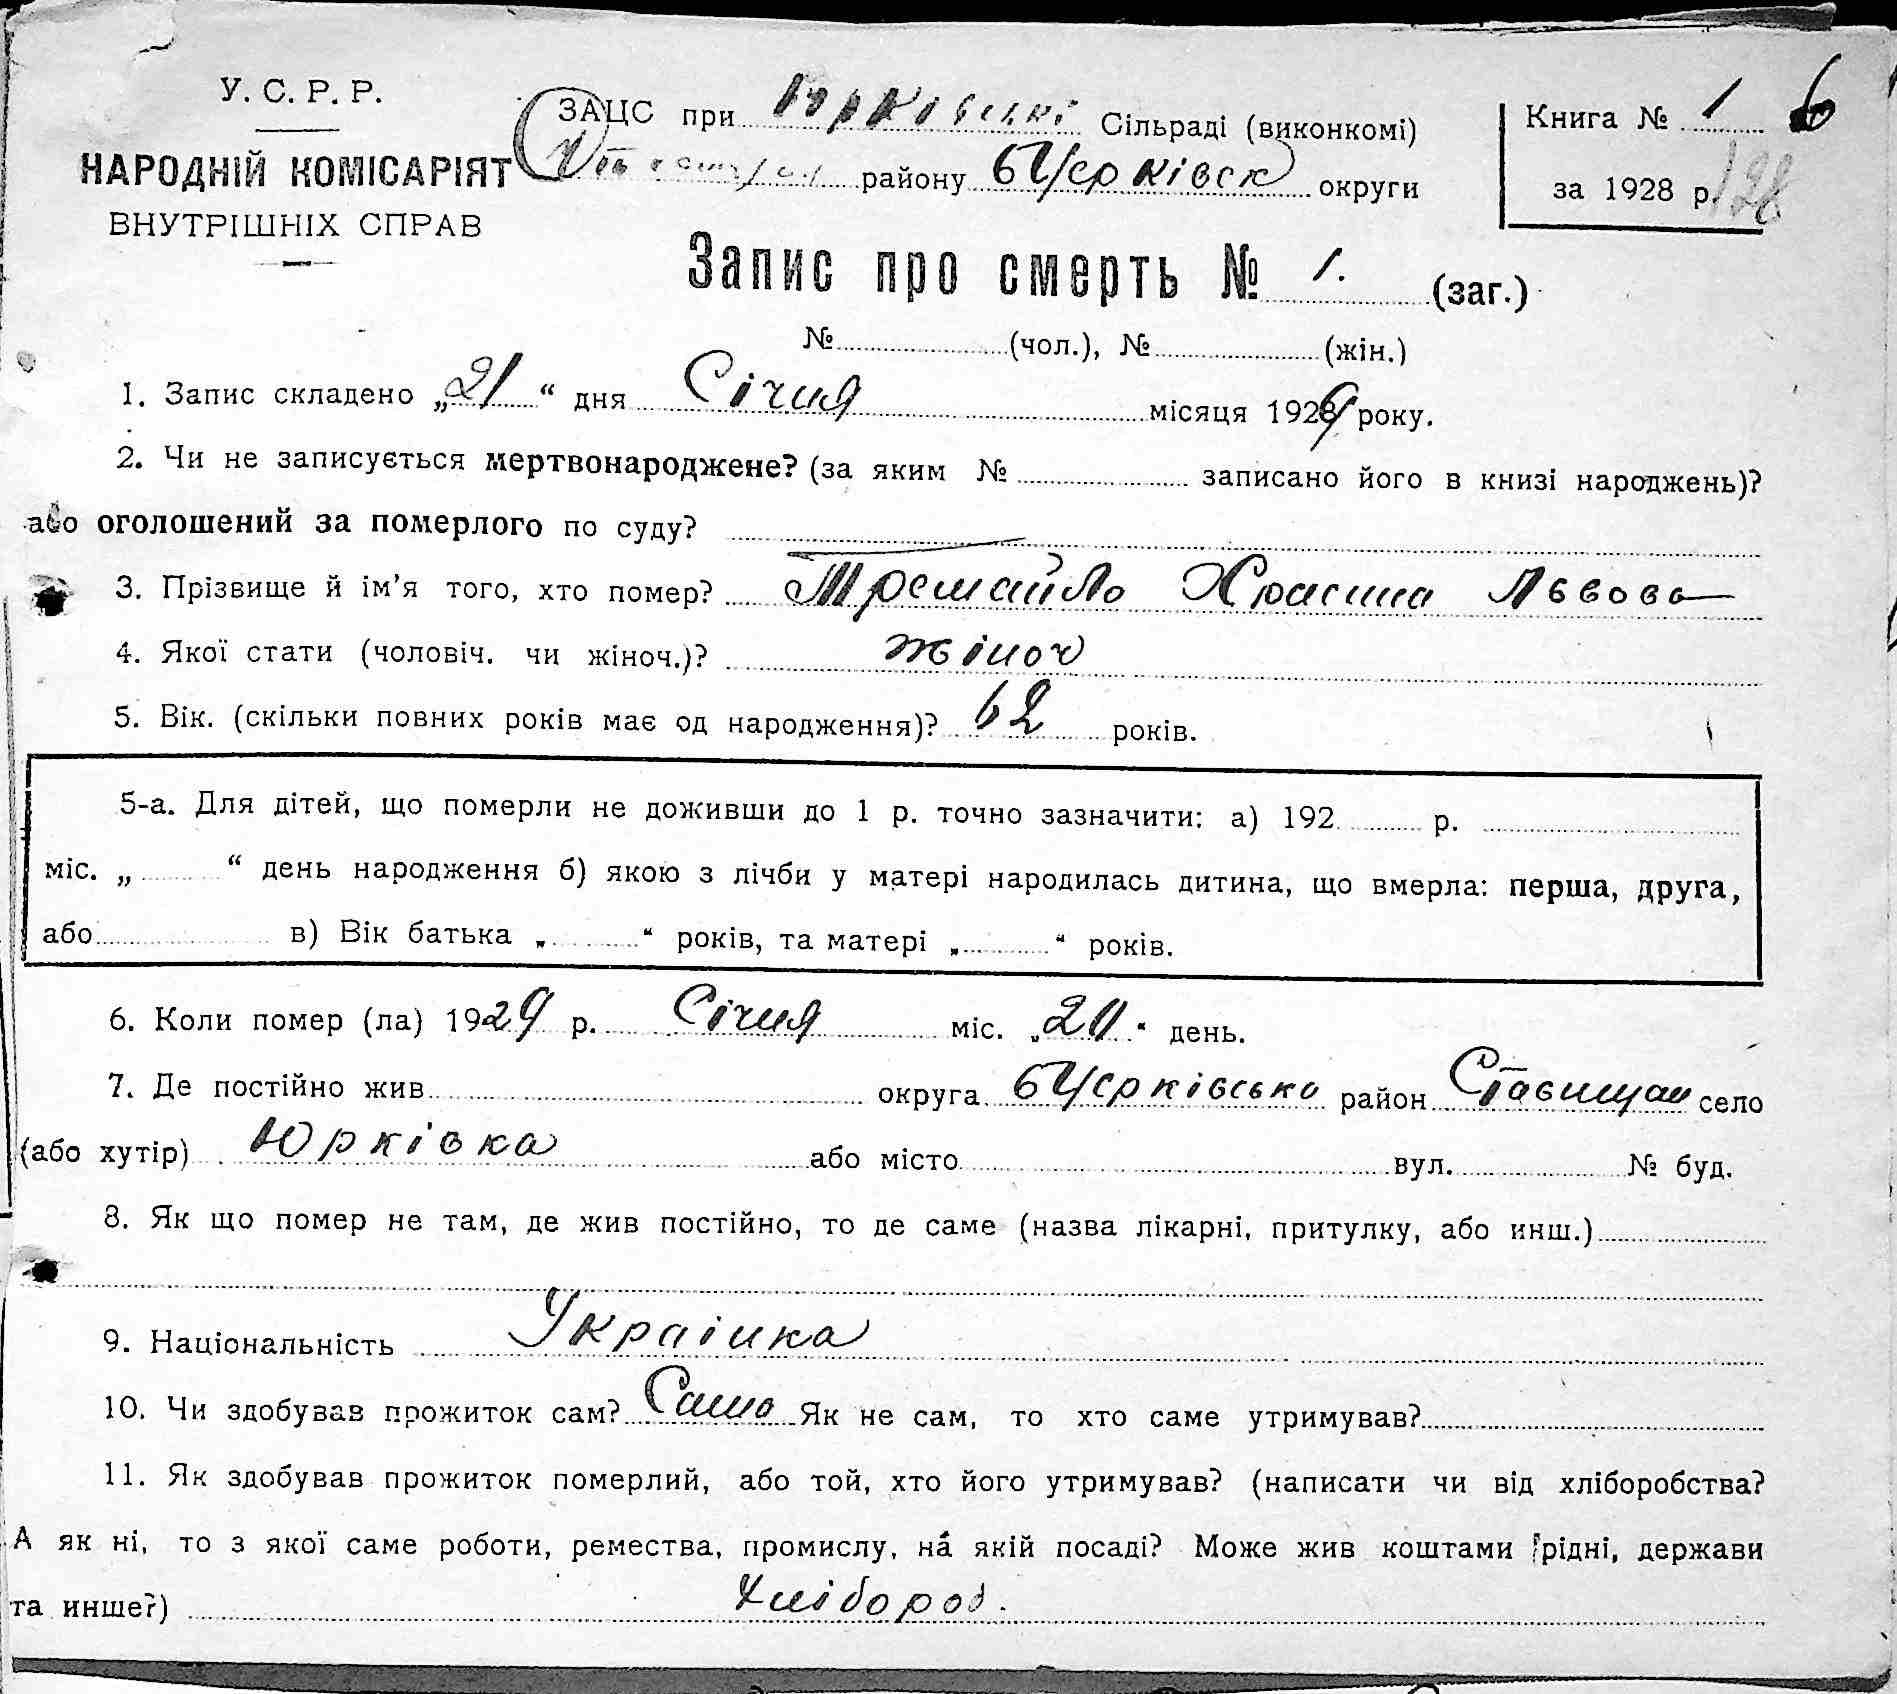 У. С. Р. Р.
НАРОДНІЙ КОМІСАРІЯТ
ВНУТРІШНІХ СПРАВ
ЗАЦС при Юрківські Сільраді (виконкомі)
району БЦерківск округи
Книга № 1 6
за 1928 р. 128
Запис про смерть № 1. (заг.)
№ (чол.), № (жін.)
1. Запис складено „21“ дня Січня місяця 1929 року.
2. Чи не записується мертвонароджене? (за яким № записано його в книзі народжень)?
або оголошений за померлого по суду?
3. Прізвище й ім’я того, хто помер? Львова
4. Якої стати (чоловіч. чи жіноч.)? жіноч
5. Вік. (скільки повних років має од народження)? 62 років.
5-а. Для дітей, що померли не доживши до 1 р. точно зазначити: а) 192 р.
міс. „ “ день народження б) якою з лічби у матері народилась дитина, що вмерла: перша, друга,
або в) Вік батька „ “ років, та матері „ “ років.
6. Коли помер (ла) 1929 р. Січня міс. „20“ день.
7. Де постійно жив округа БЦерківсько район Ставищан село
(або хутір) Юрківка або місто вул. № буд.
8. Як що помер не там, де жив постійно, то де саме (назва лікарні, притулку, або инш.)
9. Національність Украінка
10. Чи здобував прожиток сам? Само Як не сам, то хто саме утримував?
11. Як здобував прожиток померлий, або той, хто його утримував? (написати чи від хліборобства?
А як ні, то з якої саме роботи, ремества, промислу, на якій посаді? Може жив коштами рідні, держави
та инше?) Хлібороб.